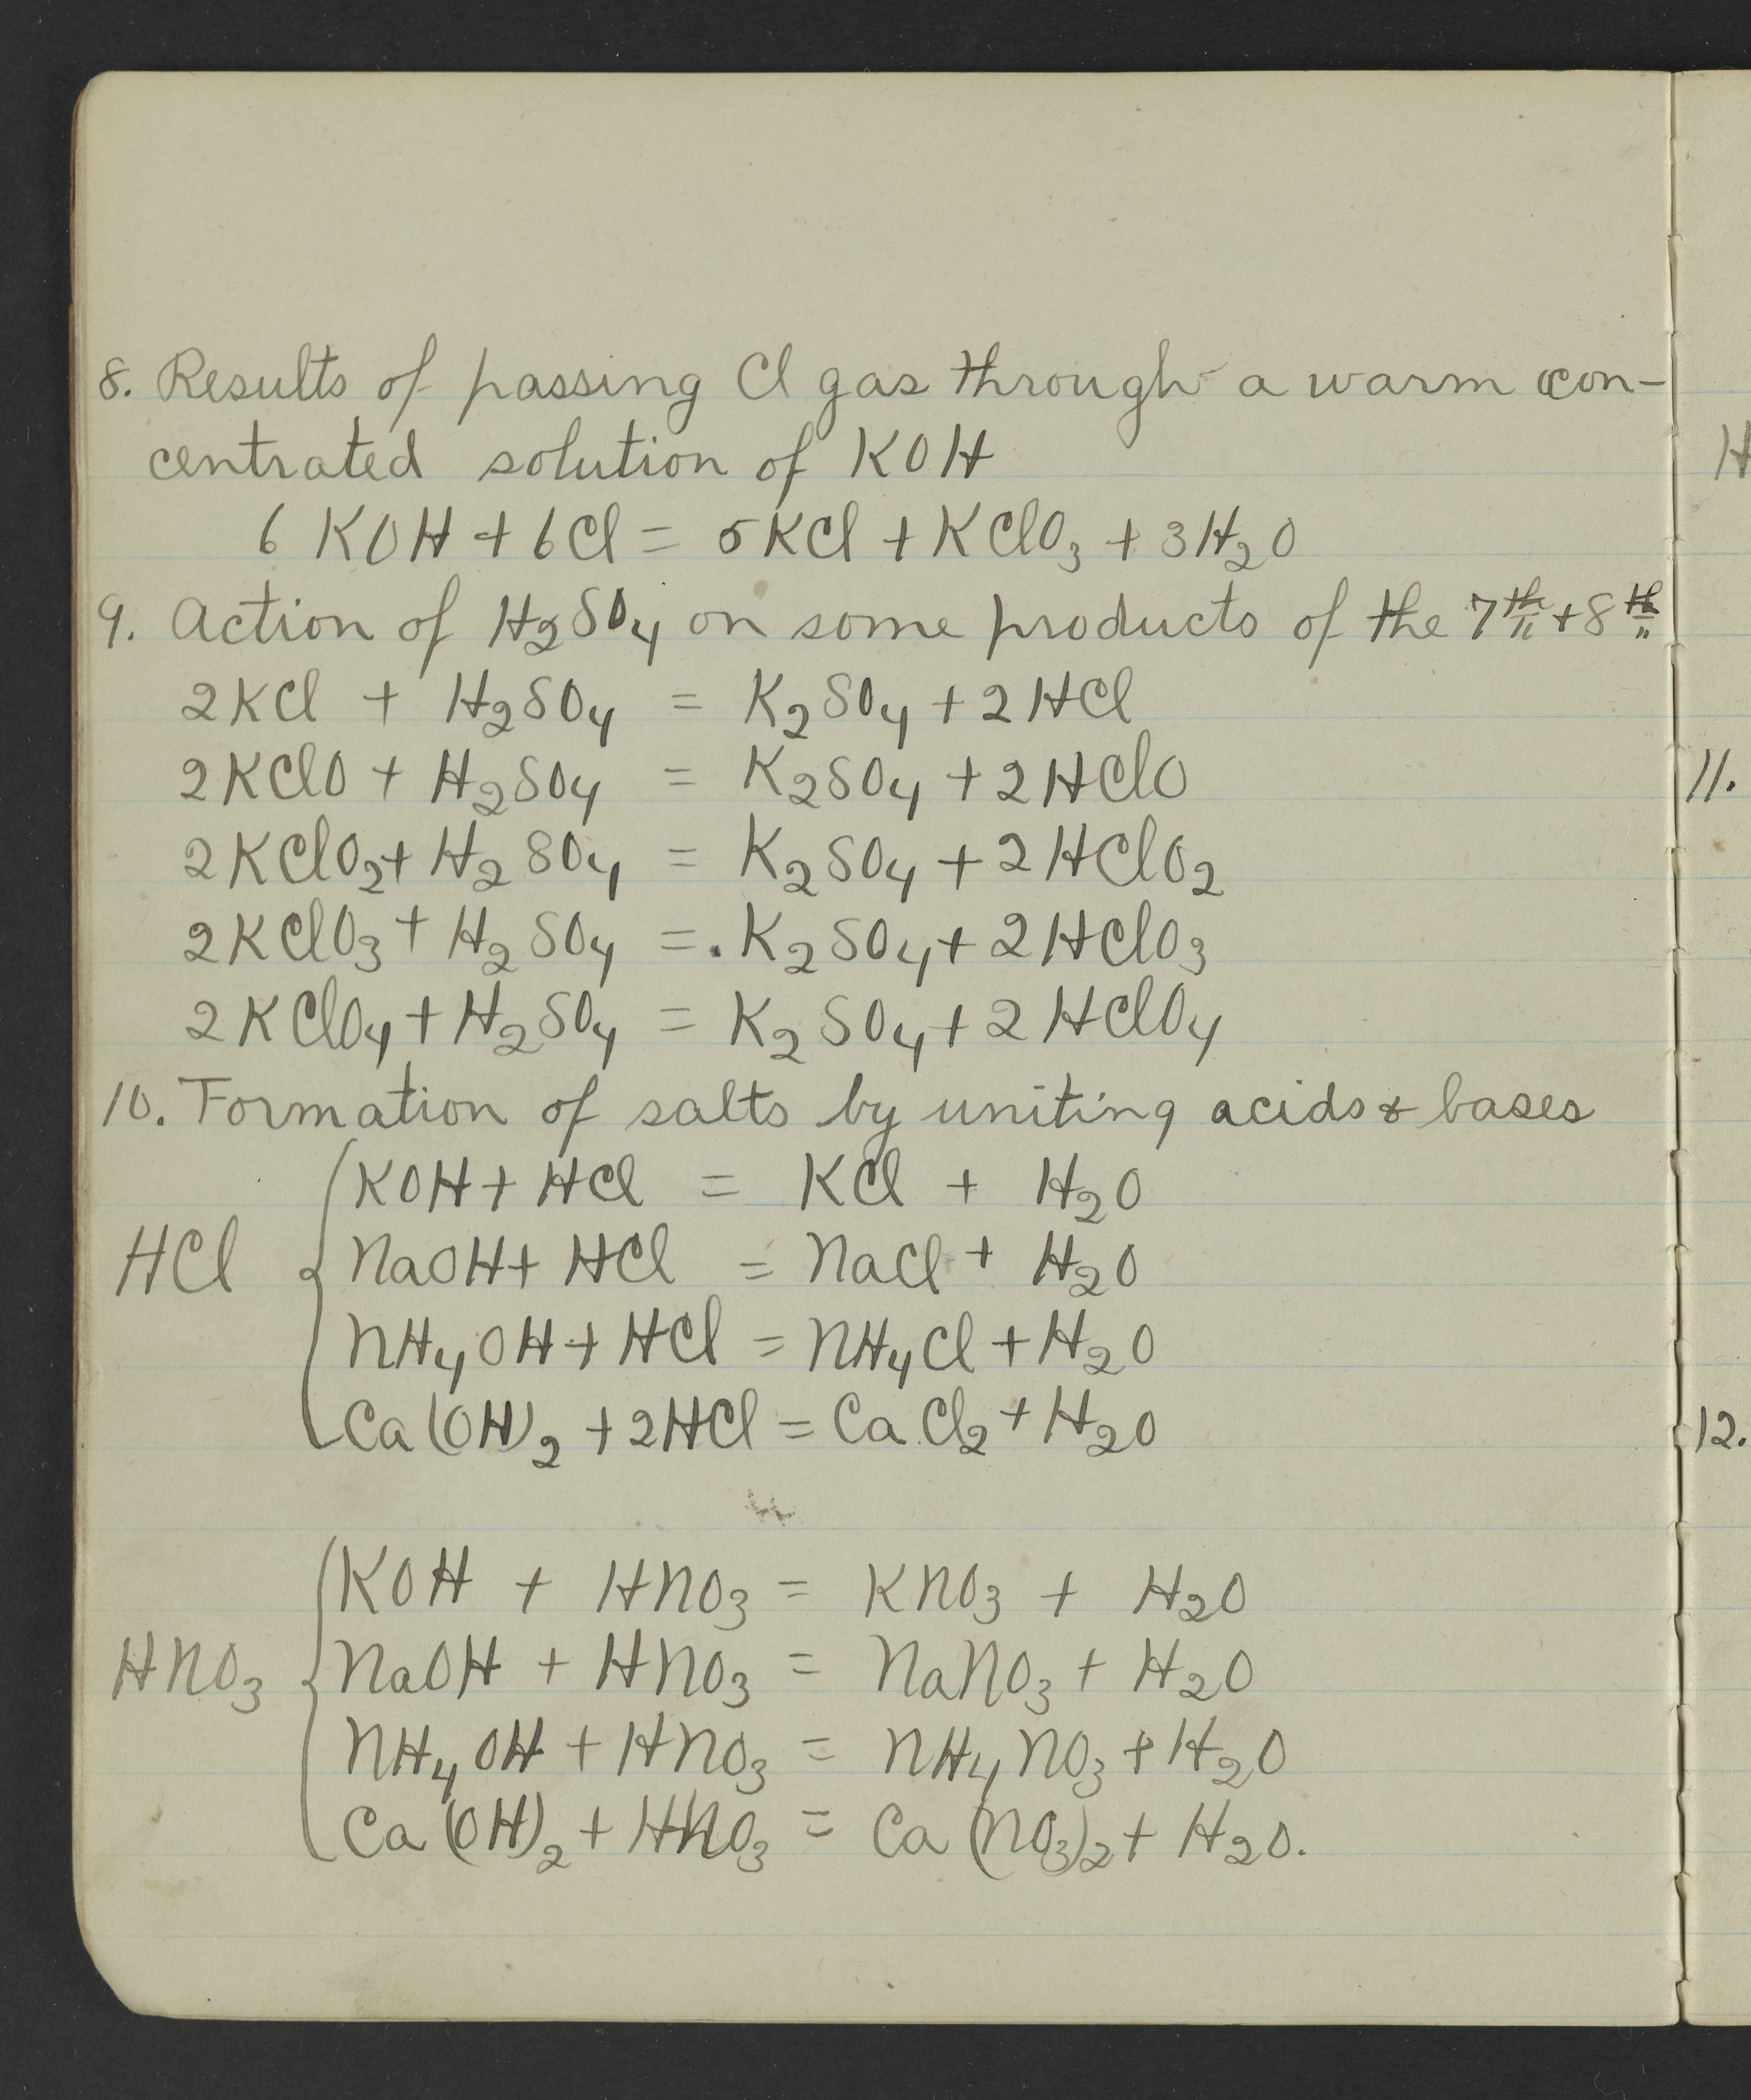 8. Results of passing Cl gas through a warm con-
centrated solution of KOH
6 KOH + 6Cl = 5KCl + KClO₃ + 3H₂O
9. Action of H₂SO₄ on some products of the 7th + 8th
2KCl + H₂SO₄ = K₂SO₄ + 2HCl
2KClO + H₂SO₄ = K₂SO₄ + 2HClO
2KClO₂ + H₂SO₄ = K₂SO₄ + 2HClO₂
2KClO₃ + H₂SO₄ = K₂SO₄ + 2HClO₃
2KClO₄ + H₂SO₄ = K₂SO₄ + 2HClO₄
10. Formation of salts by uniting acids & bases
KOH + HCl = KCl + H₂O
HCl { NaOH + HCl = NaCl + H₂O
NH₄OH + HCl = NH₄Cl + H₂O
Ca(OH)₂ + 2HCl = CaCl₂ + H₂O
KOH + HNO₃ = KNO₃ + H₂O
HNO₃ { NaOH + HNO₃ = NaNO₃ + H₂O
NH₄OH + HNO₃ = NH₄NO₃ + H₂O
Ca(OH)₂ + HNO₃ = Ca(NO₃)₂ + H₂O.
H
11.
12.